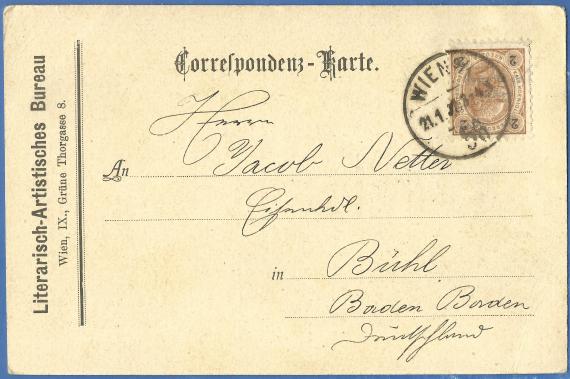 Literarisch-Artistisches Bureau
Wien, IX., Grüne Thorgasse 8.
Correspondenz-Karte.
WIEN
21.1.
2
2
Herrn
An Jacob Netter
Eisenhdl.
in Bühl
Baden Baden
Deutschland